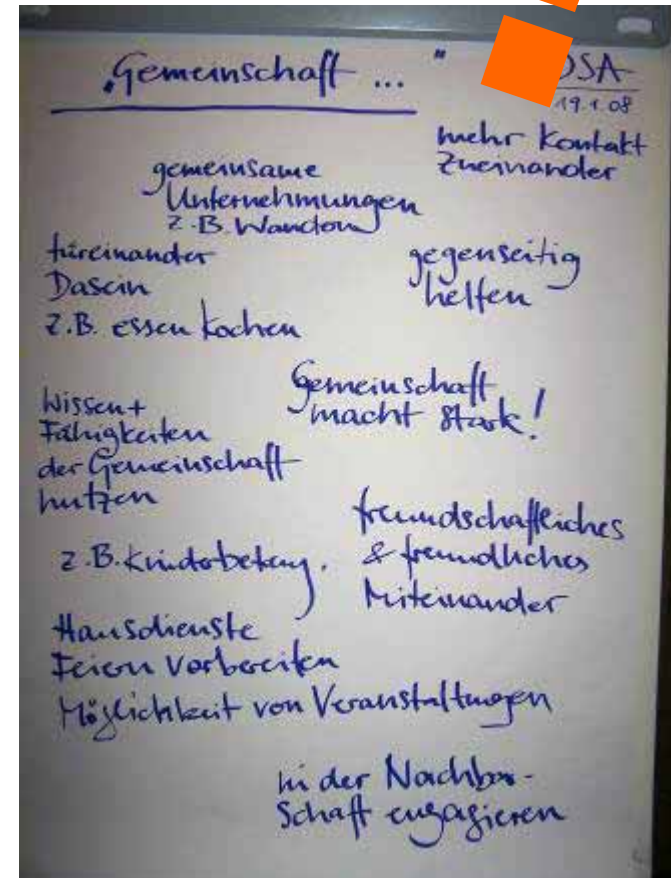 „Gemeinschaft ... "
OSA
19.1.08
mehr Kontakt
zueinander
gemeinsame
Unternehmungen
z.B. Wandern
füreinander
Dasein
z.B. essen kochen
gegenseitig
helfen
Gemeinschaft
macht stark!
Wissen +
Fähigkeiten
der Gemeinschaft
nutzen
z.B. Kinderbetreuung.
freundschaftliches
& freundliches
Miteinander
Hausdienste
Feiern vorbereiten
Möglichkeit von Veranstaltungen
in der Nachbar-
schaft engagieren